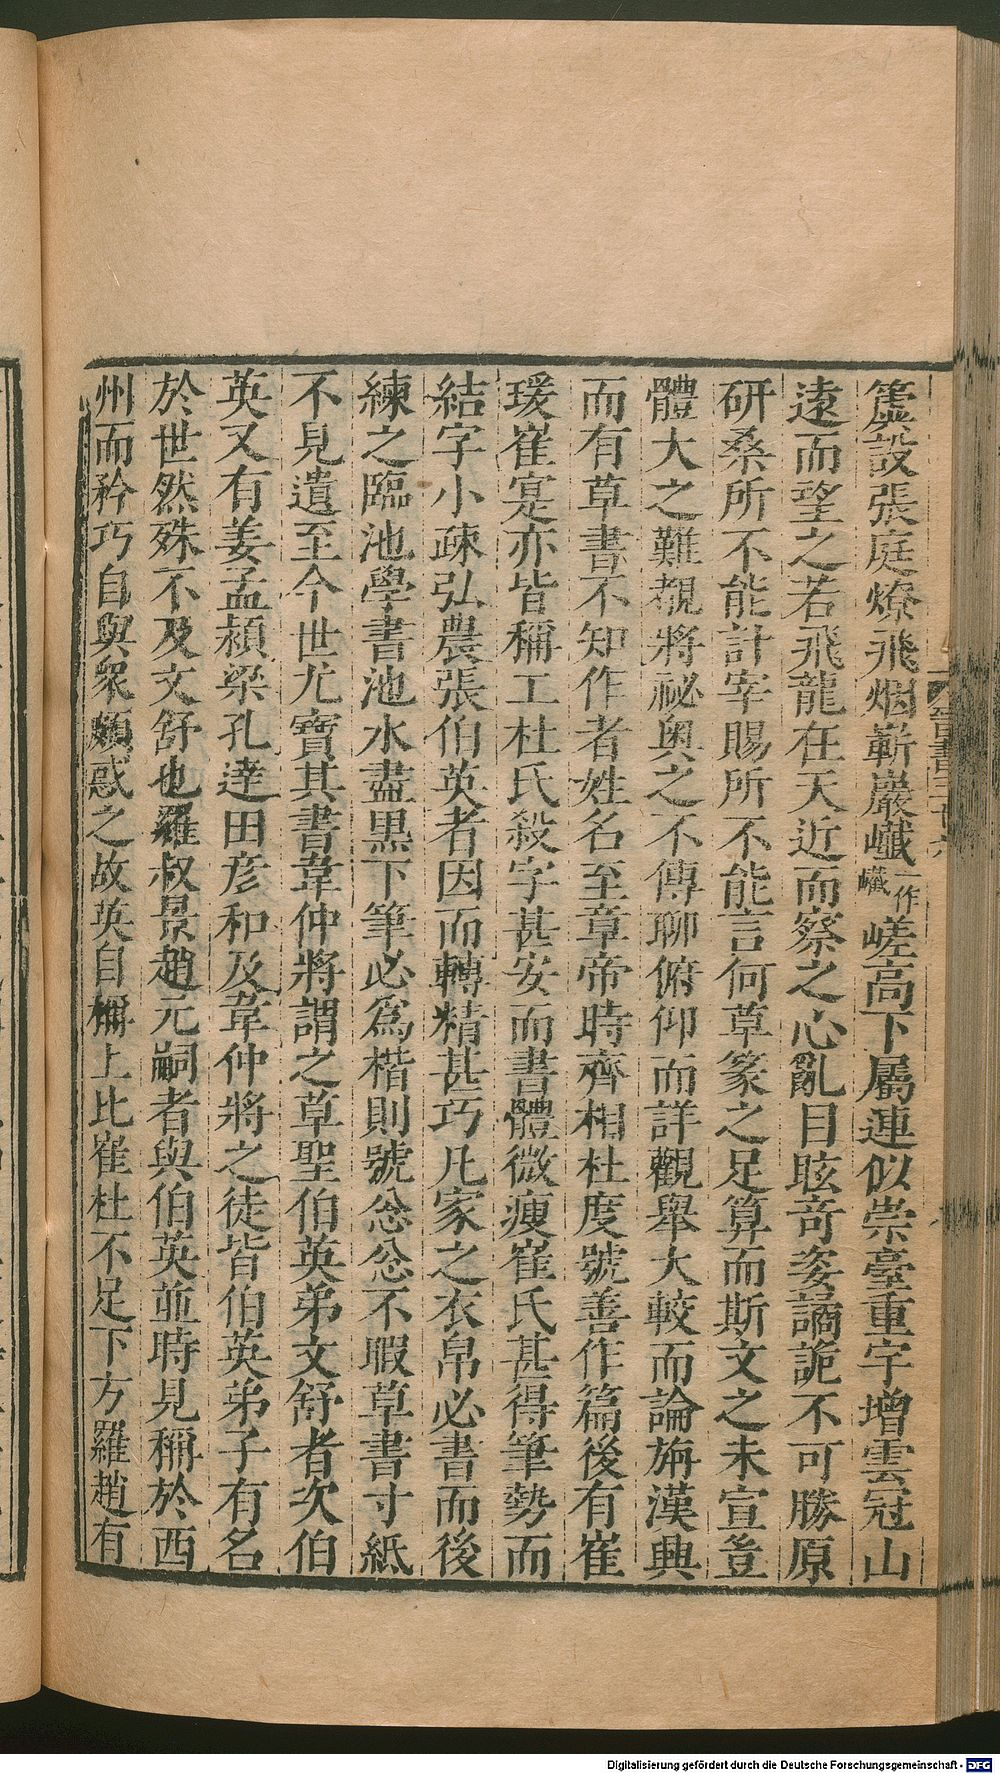 簴設張庭燎飛烟嶄巖巇一作巘嵯高下屬連似崇臺重宇增雲冠山
遠而望之若飛龍在天近而察之心亂目眩奇姿譎詭不可勝原
研桑所不能計宰賜所不能言何草篆之足算而斯文之未宣豈
體大之難覩將祕奥之不傳聊俯仰而詳觀舉大較而論旃漢興
而有草書不知作者姓名至章帝時齊相杜度號善作篇後有崔
瑗崔寔亦皆稱工杜氏殺字甚安而書體微瘦崔氏甚得筆勢而
結字小疎弘農張伯英者因而轉精甚巧凡家之衣帛必書而後
練之臨池學書池水盡黒下筆必為楷則號忩忩不暇草書寸紙
不見遺至今世尤寶其書韋仲將謂之草聖伯英弟文舒者次伯
英又有姜孟潁梁孔達田彦和及韋仲將之徒皆伯英弟子有名
於世然殊不及文舒也羅叔景趙元嗣者與伯英並時見稱於西
州而矜巧自與衆頗惑之故英自稱上比崔杜不足下方羅趙有
Digitalisierung gefördert durch die Deutsche Forschungsgemeinschaft - DFG